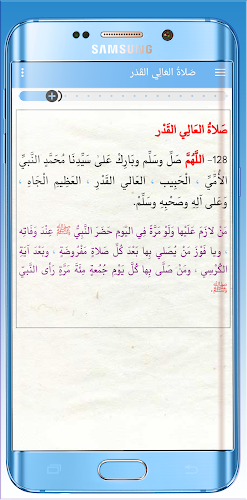 SAMSUNG
صلاةُ العالِي القَدر
صَلاَةُ العَالِي القَدْر
128- اللَّهُمَّ صَلِّ وسَلِّم وبَارِكْ عَلىٰ سَيِّدِنَا مُحَمَّدٍ النَّبيِّ
الأُمِّيِّ ، الْحَبِيب ، العَالي القَدْرِ ، العَظِيمِ الْجَاهِ ،
وَعَلى آلِهِ وصَحْبِهِ وسَلِّمْ.
مَنْ لازَمَ عَلَيْها وَلَوْ مَرَّةً فِي اليَوم حَضَرَ النَّبيُّ ﷺ عِنْدَ وَفَاتِه
، ويا فَوْزَ مَنْ يُصَلي بِها بَعْدَ كُلِّ صَلاةٍ مَفْرُوضَةٍ ، وبَعْدَ آيَةِ
الكُرْسِي ، ومَنْ صَلَّى بِها كُلَّ يَوْمِ جُمعةٍ مِئَةَ مَرَّةٍ رَأى النَّبيَ
ﷺ.